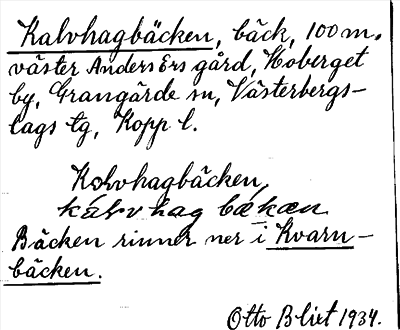 Kalvhagbäcken, bäck, 100 m.
väster Anders Ers gård, Hoberget
by, Grangärde sn, Västerbergs-
lags tg, Kopp l.
Kolvhagbäcken,
bækæn
Bäcken rinner ner i Kvarn-
bäcken.
Otto Blixt 1934.